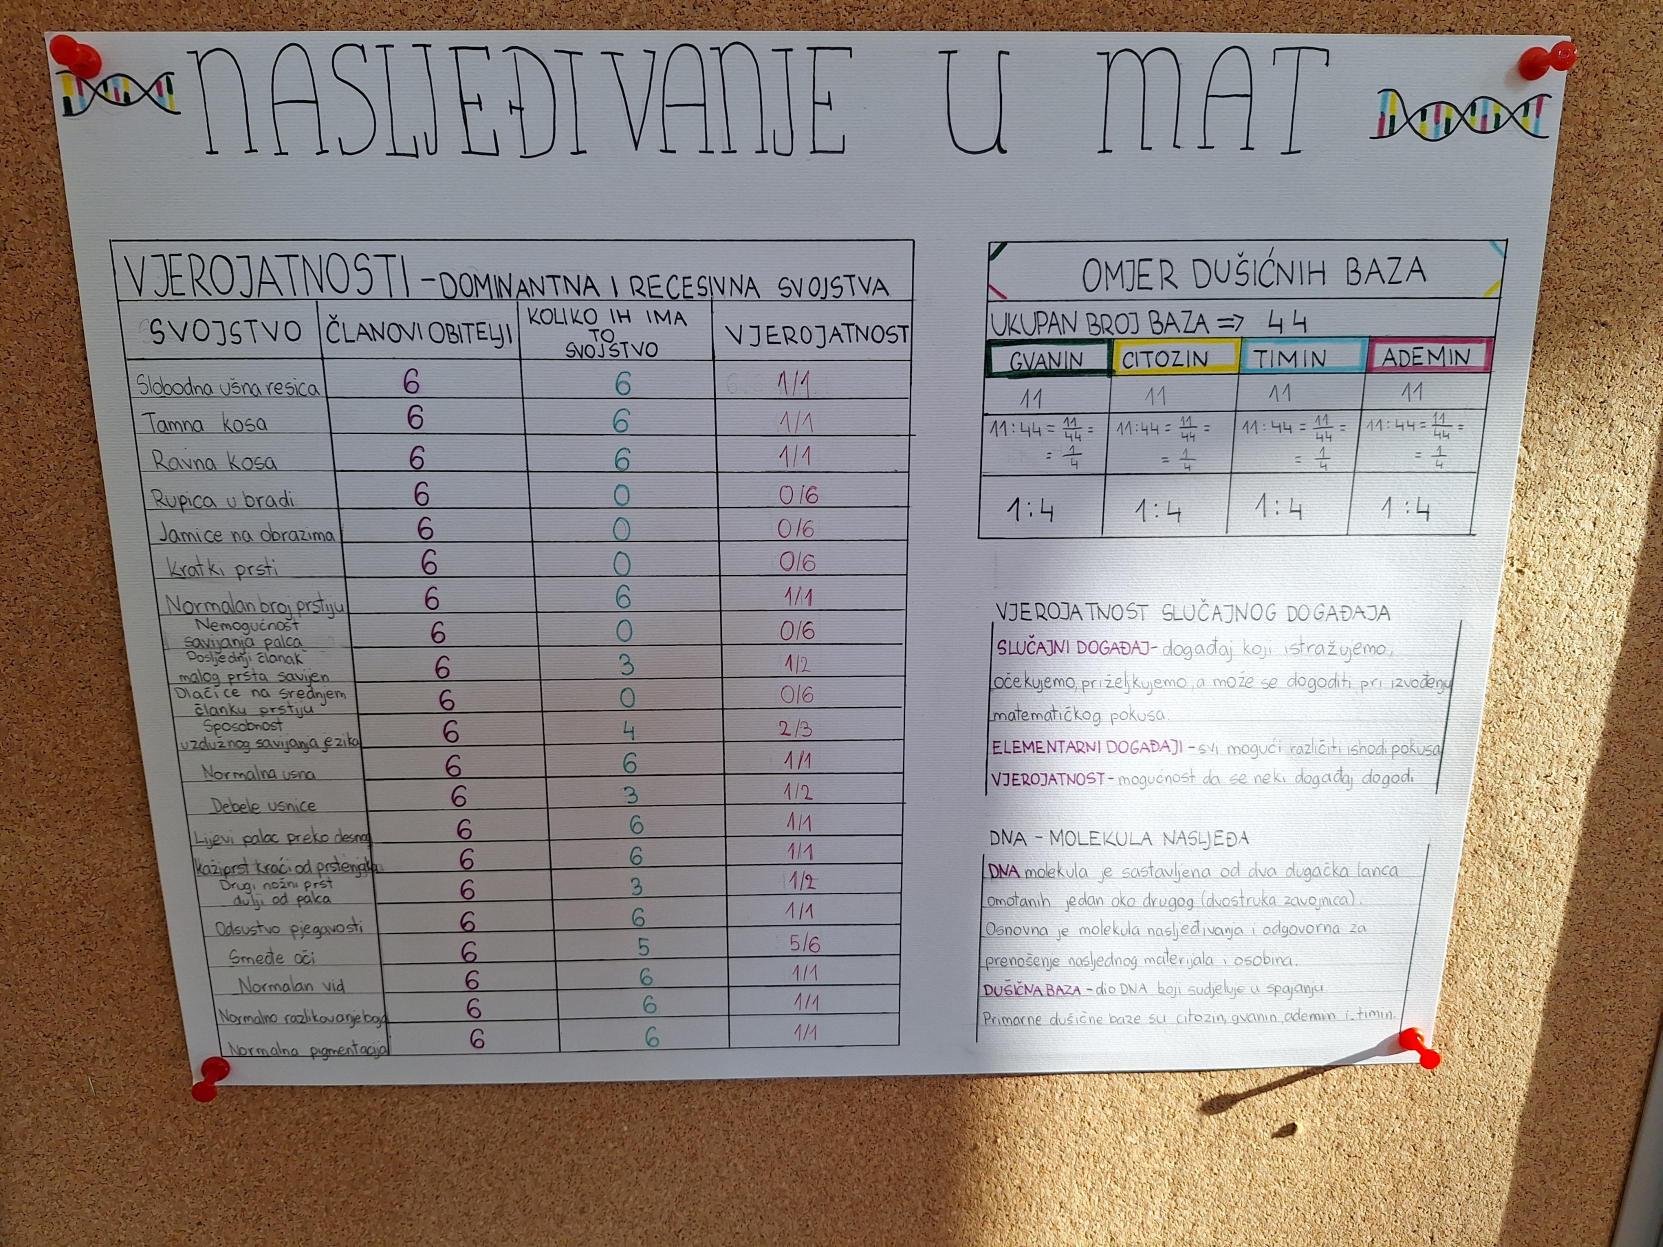 NASLJEĐIVANJE U MAT
VJEROJATNOSTI - DOMINANTNA I RECESIVNA SVOJSTVA
SVOJSTVO ČLANOVI OBITELJI KOLIKO IH IMA TO SVOJSTVO VJEROJATNOST
Slobodna ušna resica 6 6 1/1
Tamna kosa 6 6 1/1
Ravna kosa 6 6 1/1
Rupica u bradi 6 0 0/6
Jamice na obrazima 6 0 0/6
Kratki prsti 6 0 0/6
Normalan broj prstiju 6 6 1/1
Nemogućnost savijanja palca 6 0 0/6
Posljednji članak malog prsta savijen 6 3 1/2
Dlačice na srednjem članku prstiju 6 0 0/6
Sposobnost uzdužnog savijanja jezika 6 4 2/3
Normalna usna 6 6 1/1
Debele usnice 6 3 1/2
Lijevi palac preko desnog 6 6 1/1
Kažiprst kraći od prstenjaka 6 6 1/1
Drugi nožni prst dulji od palca 6 3 1/2
Odsustvo pjegavosti 6 6 1/1
Smeđe oči 6 5 5/6
Normalan vid 6 6 1/1
Normalno razlikovanje boja 6 6 1/1
Normalna pigmentacija 6 6 1/1
OMJER DUŠIĆNIH BAZA
UKUPAN BROJ BAZA => 44
GVANIN CITOZIN TIMIN ADEMIN
11 11 11 11
11:44 = 11/44 = 11:44 = 11/44 = 11:44 = 11/44 = 11:44 = 11/44 =
= 1/4 = 1/4 = 1/4 = 1/4
1:4 1:4 1:4 1:4
VJEROJATNOST SLUČAJNOG DOGAĐAJA
SLUČAJNI DOGAĐAJ - događaj koji istražujemo,
očekujemo, priželjkujemo, a može se dogoditi pri izvođenju
matematičkog pokusa.
ELEMENTARNI DOGAĐAJI - svi mogući različiti ishodi pokusa
VJEROJATNOST - mogućnost da se neki događaj dogodi
DNA - MOLEKULA NASLJEĐA
DNA molekula je sastavljena od dva dugačka lanca
omotanih jedan oko drugog (dvostruka zavojnica).
Osnovna je molekula nasljeđivanja i odgovorna za
prenošenje nasljednog materijala i osobina.
DUŠIČNA BAZA - dio DNA koji sudjeluje u spajanju.
Primarne dušične baze su citozin, gvanin, ademin i timin.